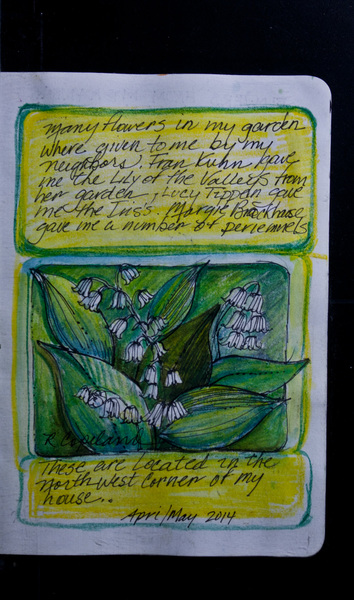 many flowers in my garden
where given to me by my
neighbors. Fran Kuhn gave
me the Lily of the Valleys from
her garden, Lucy Tippen gave
me the Iris's. Margie Brockhouse
gave me a number of
R Copeland
These are located in the
North West Corner of my
house..
April/May 2014